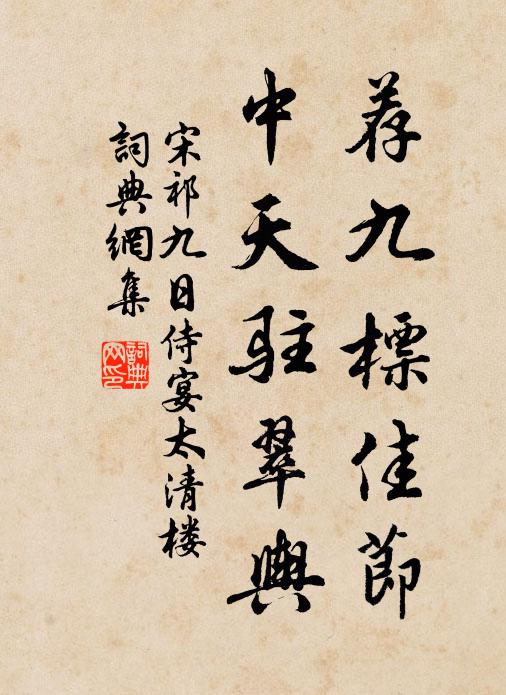 荐九標佳節
中天駐翠輿
宋祁九日侍宴太清楼
詞典網集
詞典
网印